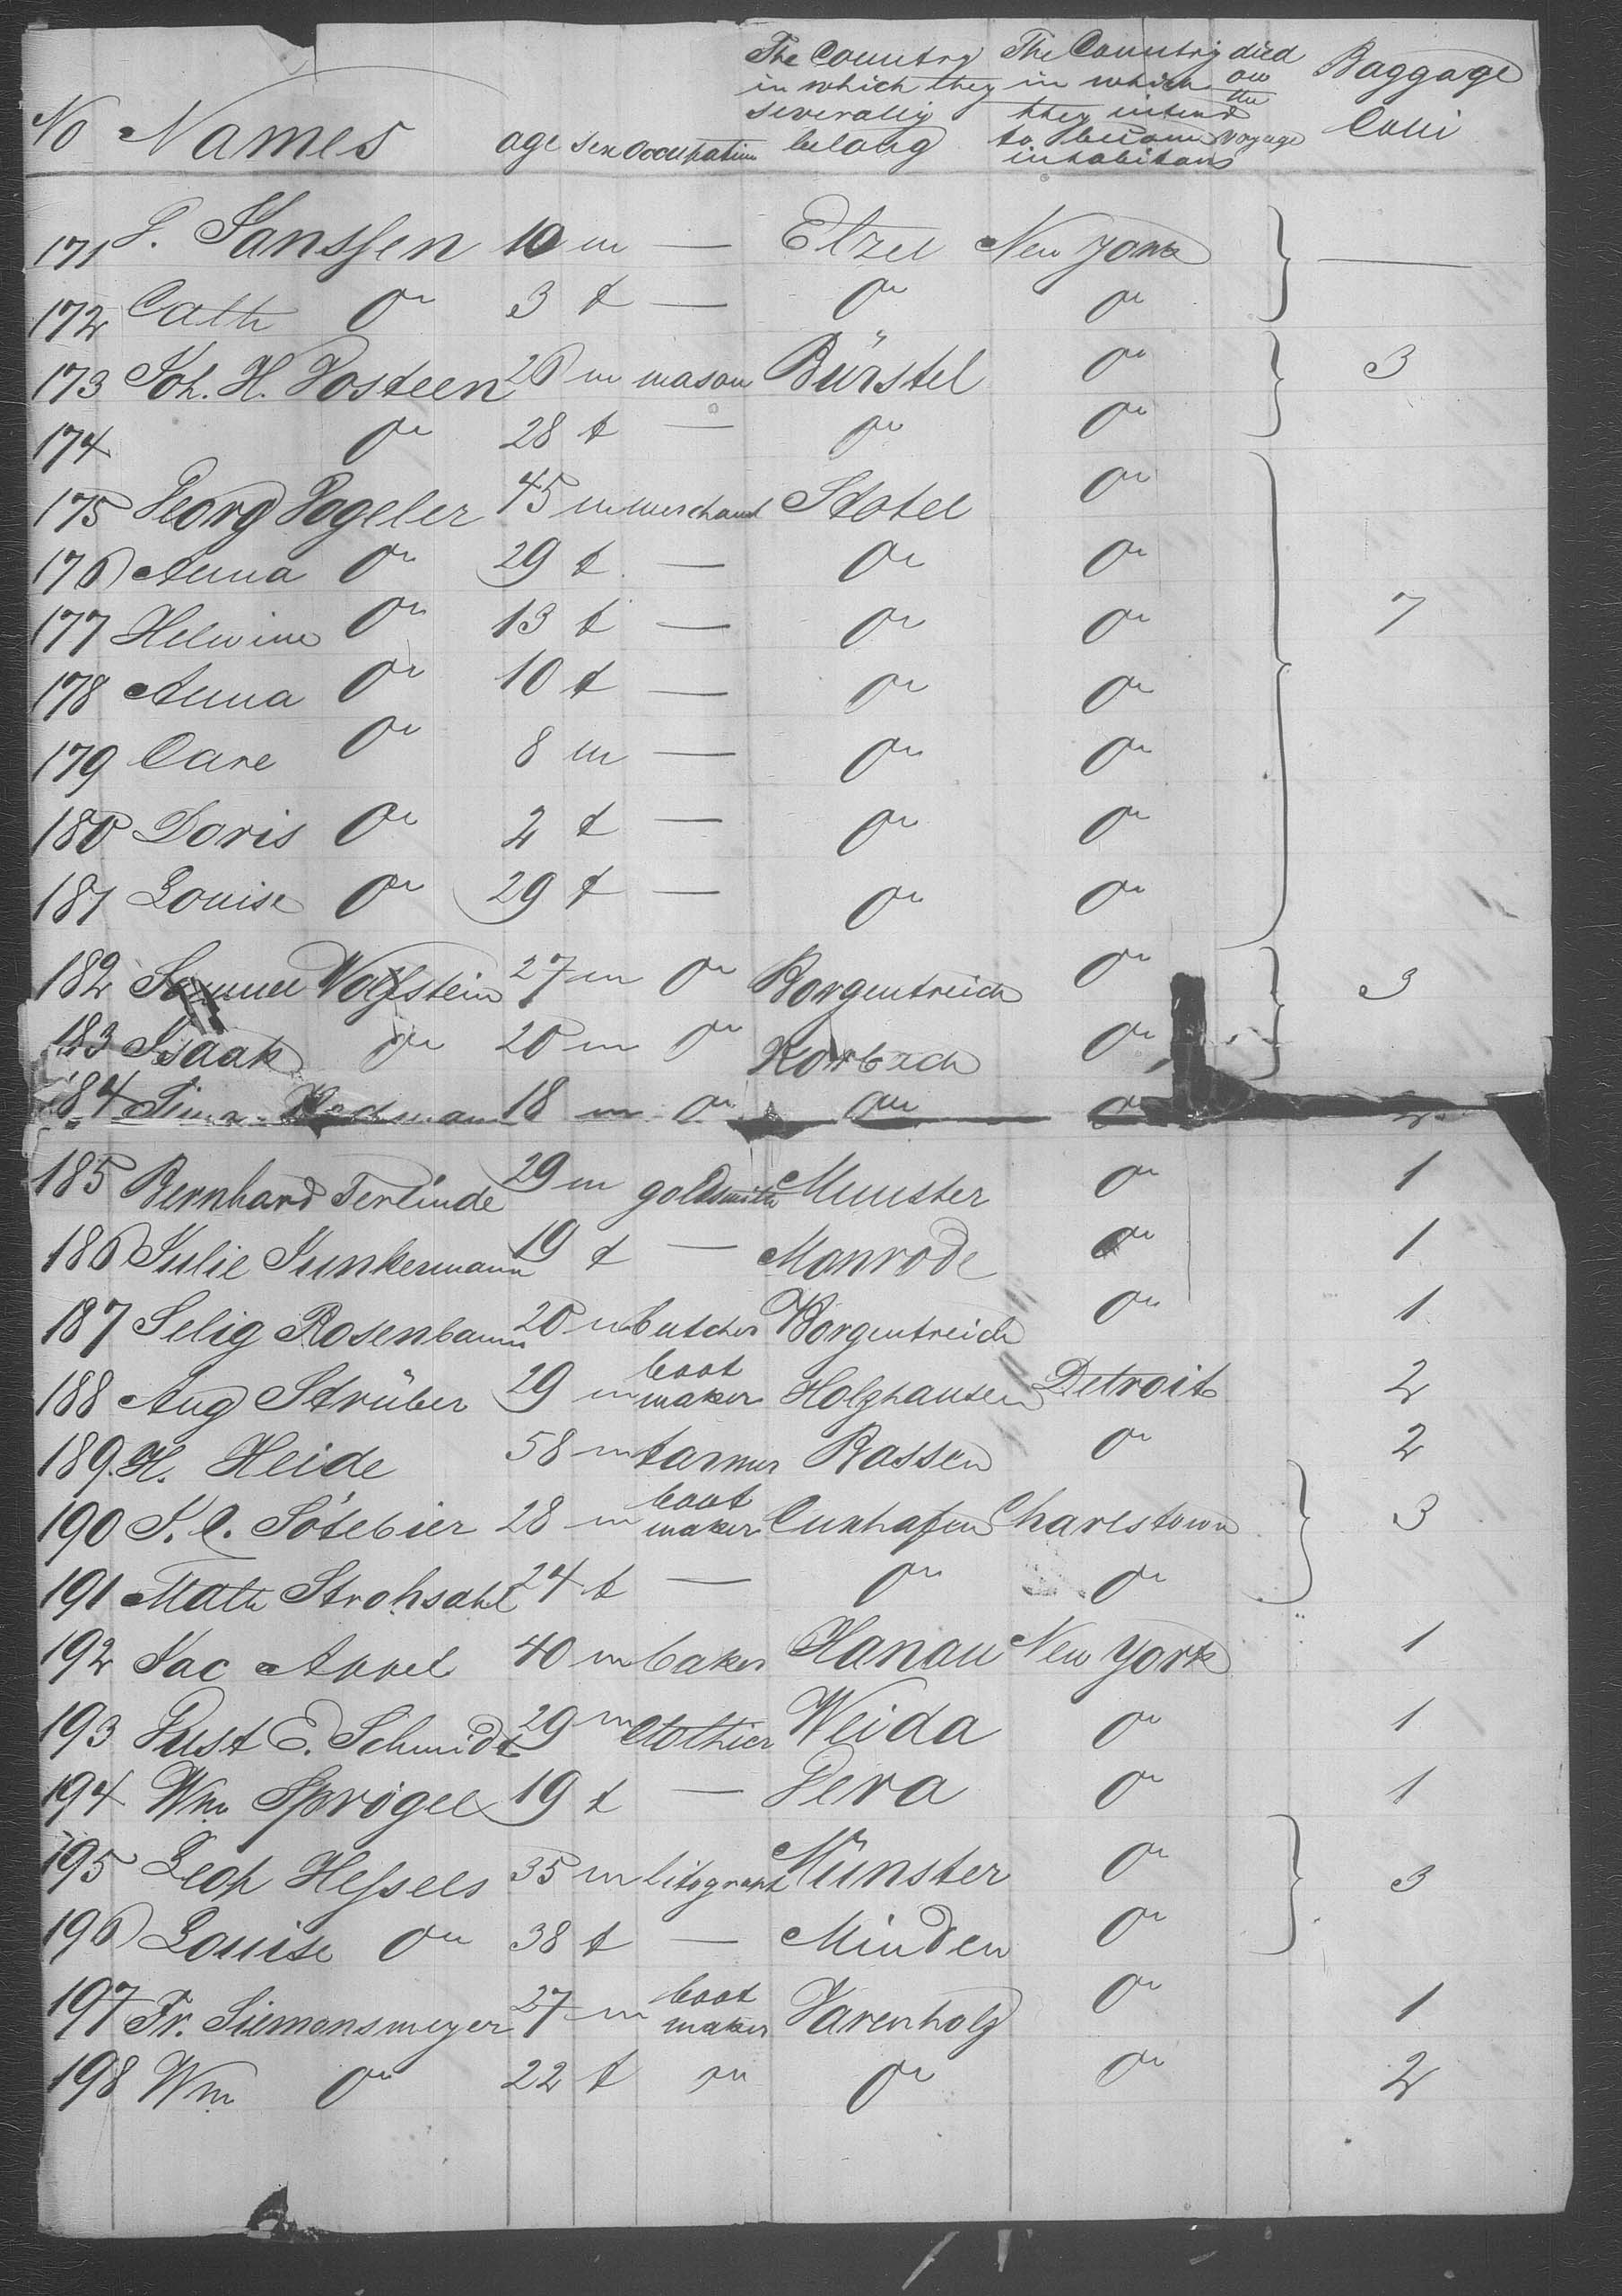 No Names age sex occupation The Country in which they severally belong The Country in which they intend to become inhabitans died on the voyage Baggage Colli
171 J. Janssen 10 m — Etzel New York —
172 Cath do 3 f — do do
173 Joh. H. Posteen 26 m mason Bürstel do 3
174 do 28 f — do do
175 Georg Vogeler 45 m merchant Stotel do
176 Anna do 29 f — do do
177 Helwine do 13 f — do do 7
178 Anna do 10 f — do do
179 Carl do 8 m — do do
180 Doris do 2 f — do do
181 Louise do 29 f — do do
182 Samuel Wolfstein 27 m do Borgentreich do 3
183 Isaak do 20 m do Korbach do
184 18 m do do do 2
185 Bernhard Terlinde 29 m goldsmith Munster do 1
186 Julie Junkermann 19 f — Monrode do 1
187 Selig Rosenbaum 20 m butcher Borgentreich do 1
188 Aug Strüber 29 m boot maker Holzhausen Detroit 2
189. H. Heide 58 m farmer Bassen do 2
190 J. C. Sötebier 28 m boot maker Cuxhafen Charlstown 3
191 Math Strohsahl 24 f — do do
192 Jac Appel 40 m baker Hanau New York 1
193 Gust E. Schmidt 29 m clothier Weida do 1
194 Wm Sprögel 19 f — Gera do 1
195 Leop Hessels 35 m litograph Münster do 3
196 Louise do 38 f — Minden do
197 Fr. Siemonsmeyer 27 m boot maker Varenholz do 1
198 Wm do 22 f do do do 2